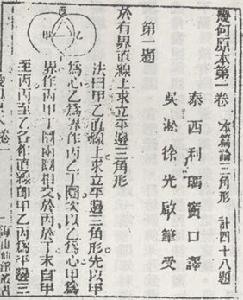 幾何原本第一卷 本篇論三角形 計四十八題
泰西利瑪竇口譯
吳淞徐光啟筆受
第一題
於有界直線上求立平邊三角形
法曰甲乙直線上求立平邊三角形先以甲
為心乙為界作丙乙丁圜次以乙為心甲為
界作丙甲丁圜兩圜相交於丙於丁末自甲
至丙丙至乙各作直線即甲乙丙為平邊三
丙
乙
甲
海山仙館叢書